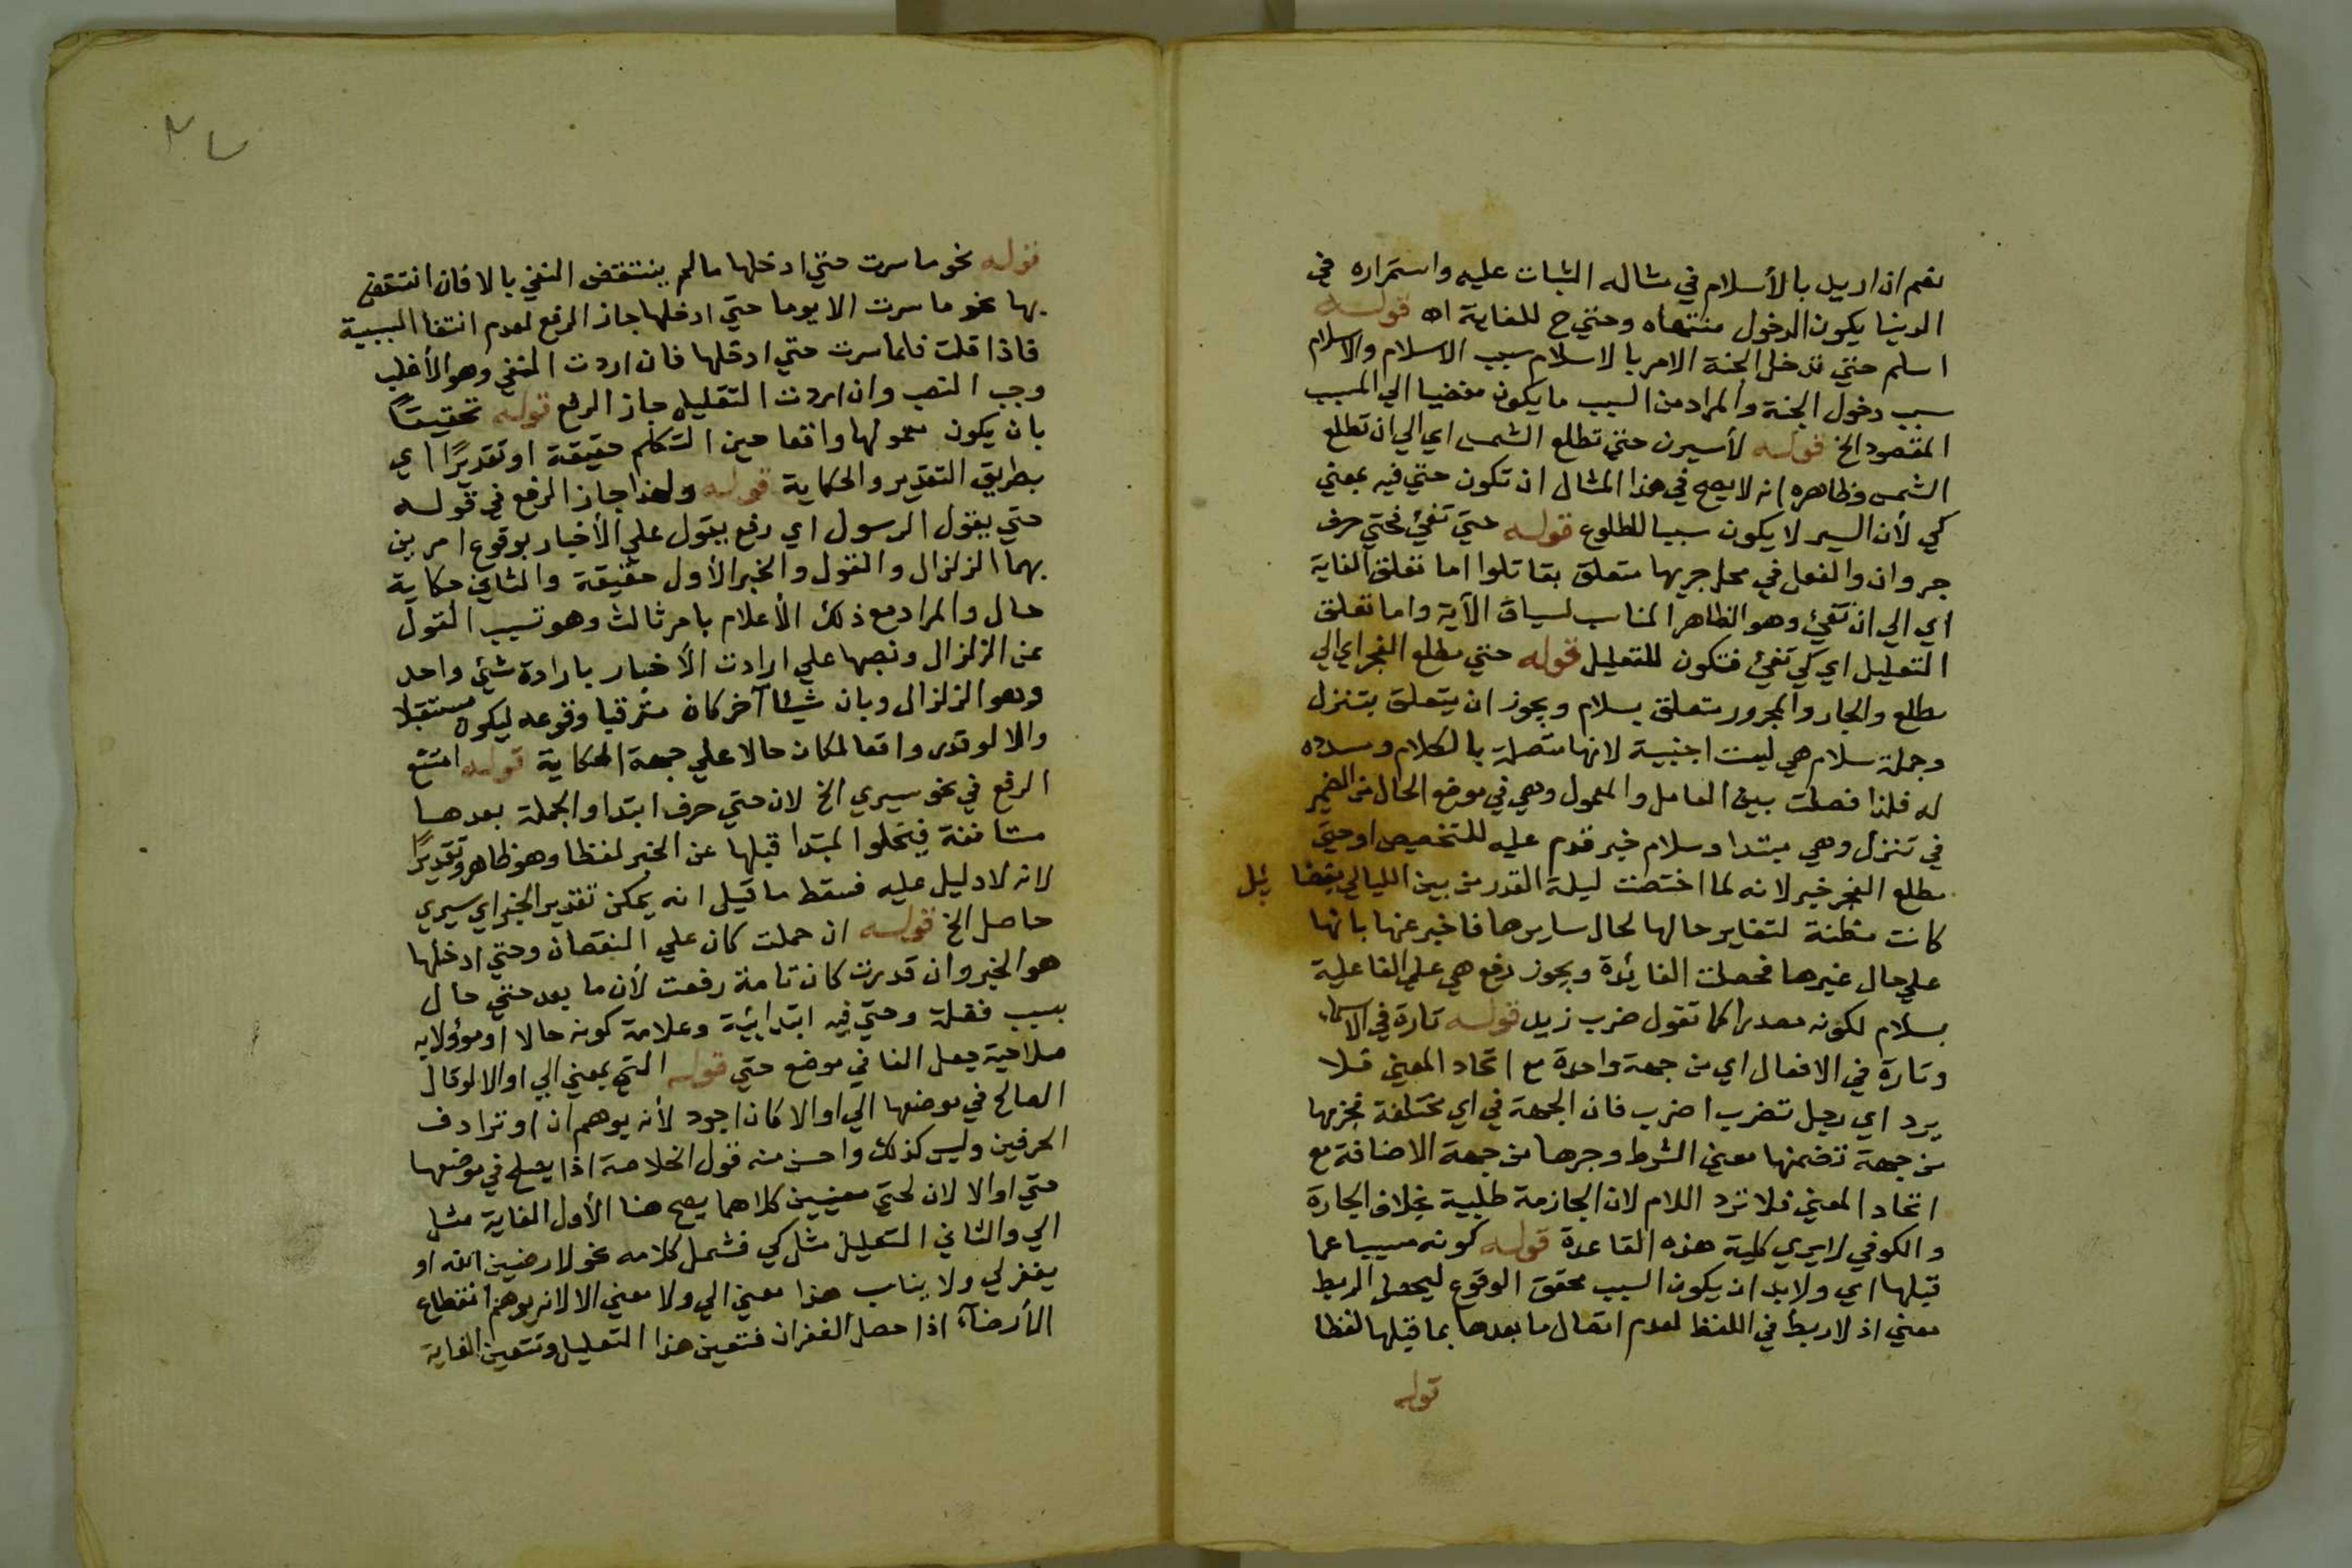 نعم ان اريد بالأسلام في مثاله الثبات عليه واستمراره في
الدينا يكون الدخول منتهاه وحتي ح للغاية اه قوله
اسلم حتي تدخل الجنة الامر بالاسلام سبب الاسلام والاسلام
سبب دخول الجنة والمراد من السبب ما يكون مفضيا الي المسبب
المقصود الخ قوله لأسيرن حتي تطلع الشمس اي الي ان تطلع
الشمس وظاهره انه لا يصح في هذا المثال ان تكون حتي فيه بمعني
كي لأن السير لا يكون سببا للطلوع قوله حتي تفيء فحتي حرف
جر وان والفعل في محل جر بها متعلق بقاتلوا اما تعلق الغاية
اي الي ان تفيء وهو الظاهر المناسب لسياق الآية واما تعلق
التعليل اي كي تفيء فتكون للتعليل قوله حتي مطلع الفجر اي الي
مطلع والجار والمجرور متعلق بسلام ويجوز ان يتعلق بتنزل
وجملة سلام هي ليست اجنبية لانها متصلة بالكلام ومسددة
له فلذا فصلت بين العامل والمعمول وهي في موضع الحال من الضمير
في تنزل وهي مبتدا وسلام خبر قدم عليه للتخصيص او حتي
مطلع الفجر خبر لانه لما اختصت ليلة القدر من بين الليالي بفضايل
كانت مظنة لتغاير حالها لحال سايرها فاخبر عنها بانها
علي حال غيرها فحصلت الفائدة ويجوز رفع هي علي الفاعلية
بسلام لكونه مصدرا كما تقول ضرب زيد قوله تارة في الاسماء
وتارة في الافعال اي من جهة واحدة مع اتحاد المعني فلا
يرد اي رجل تضرب اضرب فان الجهة في اي مختلفة فجزمها
من جهة تضمنها معني الشرط وجرها من جهة الاضافة مع
اتحاد المعني فلا ترد اللام لان الجازمة طلبية بخلاف الجارة
والكوفي لا يري كلية هذه القاعدة قوله كونه مسببا عما
قبلها اي ولا بد ان يكون السبب محقق الوقوع ليحصل الربط
معني اذ لا ربط في اللفظ لعدم اتصال ما بعدها بما قبلها لفظا
قوله
قوله نحو ما سرت حتي ادخلها ما لم ينتقض النفي بالا فان انتقض
بها نحو ما سرت الا يوما حتي ادخلها جاز الرفع لعدم انتفا السببية
فاذا قلت قلما سرت حتي ادخلها فان اردت النفي وهو الأغلب
وجب النصب وان اردت التقليل جاز الرفع قوله تحقيقًا
بان يكون معمولها واقعا حين التكلم حقيقة او تقديرًا اي
بطريق التقدير والحكاية قوله ولهذا جاز الرفع في قوله
حتي يقول الرسول اي رفع يقول علي الأخبار بوقوع امرين
بهما الزلزال والقول والخبر الأول حقيقة والثاني حكاية
حال والمراد مع ذلك الأعلام بامر ثالث وهو تسبب القول
عن الزلزال ونصبها علي ارادت الأخبار بارادة شيئ واحد
وهو الزلزال وبان شيئا آخر كان مترقبا وقوعه ليكون مستقبلا
والا لو قدر واقعا لمكان حالا علي جهة الحكاية قوله امتنع
الرفع في نحو سيري الخ لان حتي حرف ابتدا والجملة بعدها
مستانفة فيخلوا المبتدا قبلها عن الخبر لفظا وهو ظاهر وتقديرًا
لانه لا دليل عليه فسقط ما قيل انه يمكن تقدير الخبر اي سيري
حاصل الخ قوله ان حملت كان علي النقصان وحتي ادخلها
هو الخبر وان قدرت كان تامة رفعت لأن ما بعد حتي حال
بسبب فضلة وحتي فيه ابتدائية وعلامة كونه حالا او مؤولا به
صلاحية جعل الفا في موضع حتي قوله التي بمعني الي او الا لو قال
الصالح في موضعها الي او الا كان اجود لأنه يوهم ان او ترادف
الحرفين وليس كذلك واحسن منه قول الخلاصة اذا يصلح في موضعها
حتي او الا لان لحتي معنيين كلاهما يصح هنا الأول الغاية مثل
الي والثاني التعليل مثل كي فشمل كلامه نحو لارضين الله او
يغفر لي ولا يناسب هذا معني الي ولا معني الا لانه يوهم انقطاع
الأرضآء اذا حصل الغفران فتعين هذا التعليل وتتعين الغاية